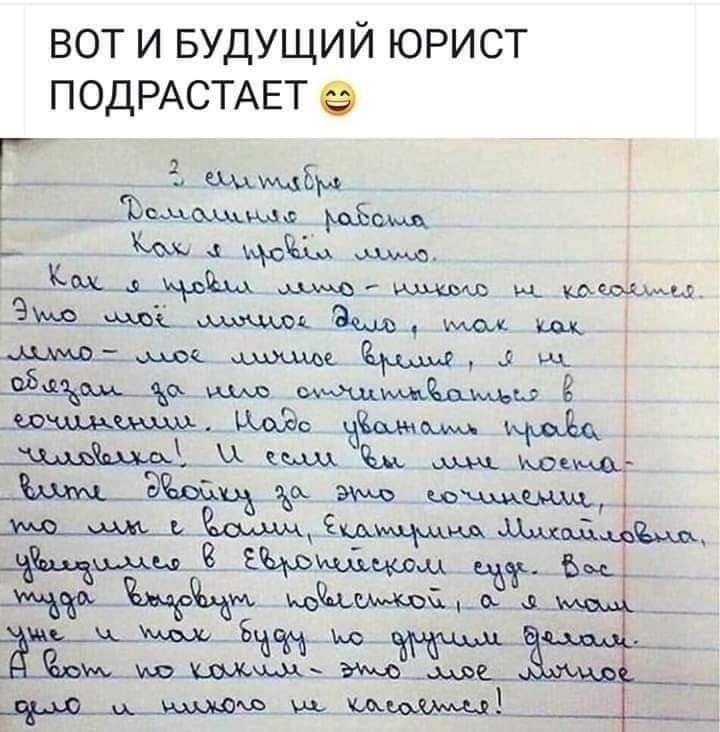 ВОТ И БУДУЩИЙ ЮРИСТ
ПОДРАСТАЕТ 😄
2 сентября
Домашняя работа
Как я провёл лето.
Как я провёл лето – никого не касается.
Это моё личное дело, так как
лето – мое личное время, я не
обязан за него отчитываться в
сочинении. Надо уважать права
человека! И если вы мне поста-
вите двойку за это сочинение,
то мы с вами, Екатерина Михайловна,
увидимся в Европейском суде. Вас
туда вызовут повесткой, а я там
уже и так буду по другим делам.
А вот по каким – это мое личное
дело и никого не касается!